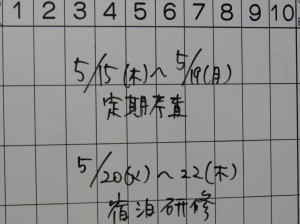 1 2 3 4 5 6 7 8 9 10
5/15(木)〜5/19(月)
定期考査
5/20(火)〜22(木)
宿泊研修